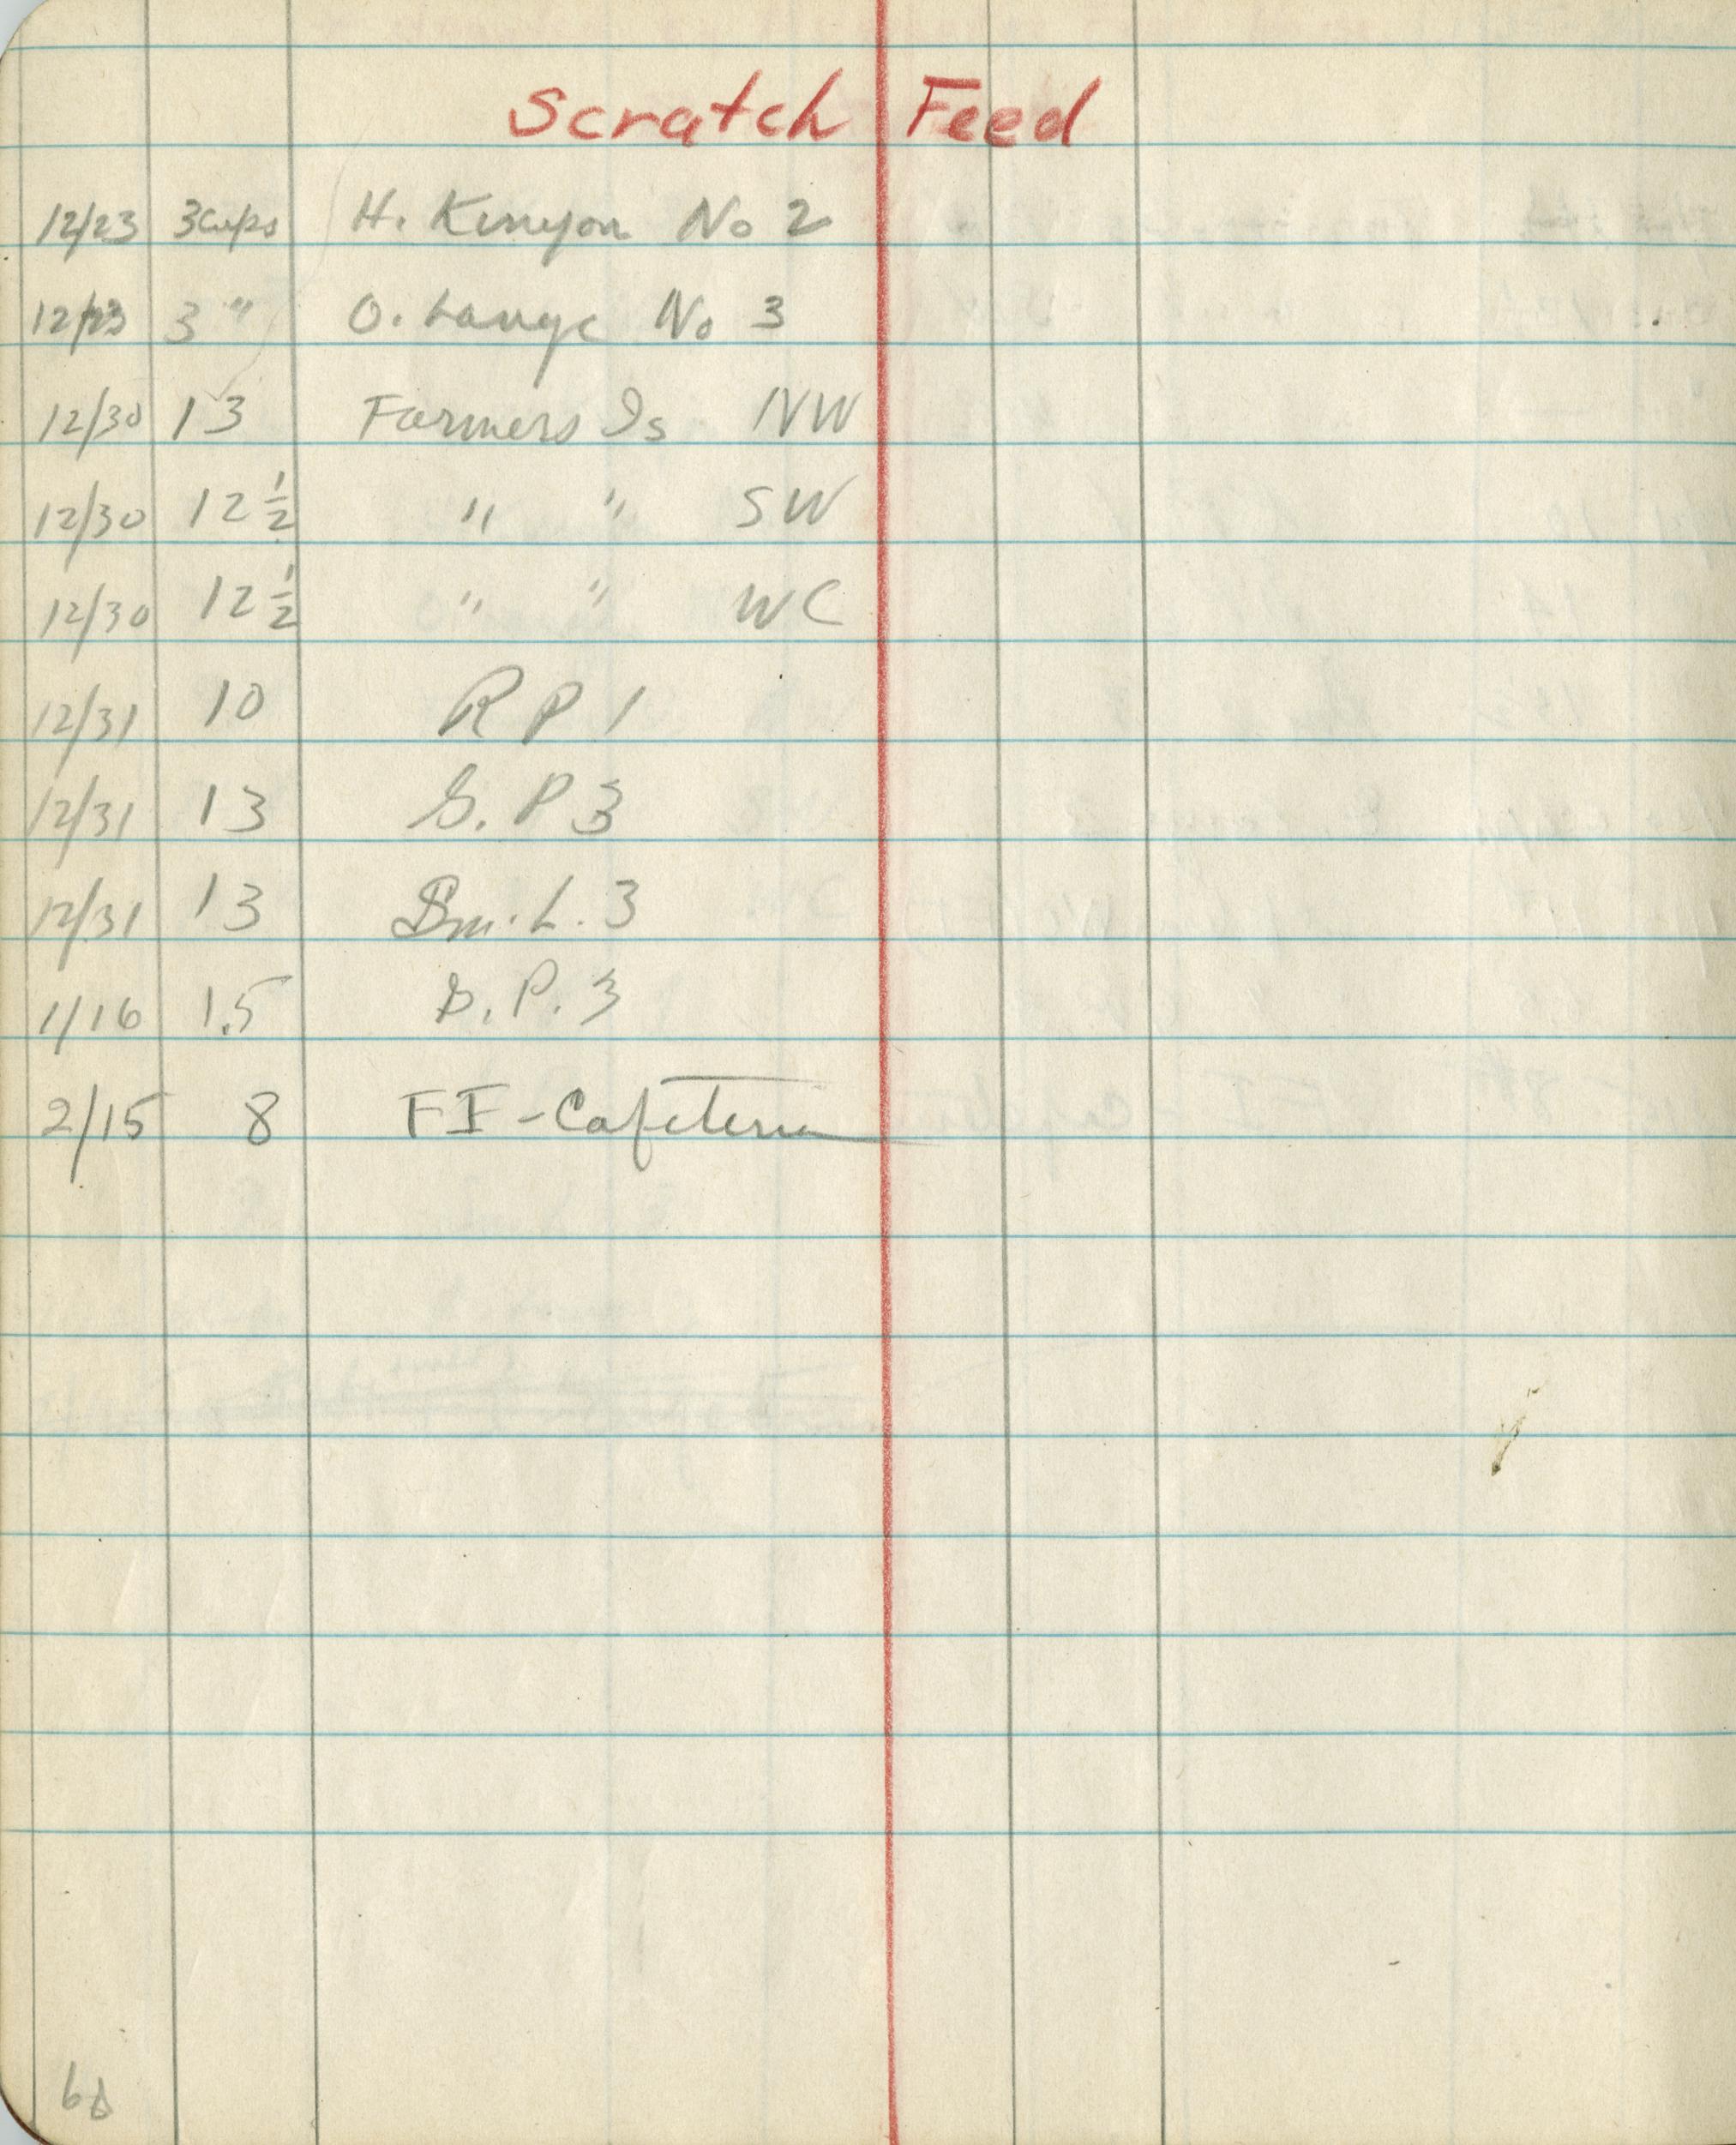 Scratch Feed
12/23 3 Cups H. Kenyon No 2
12/23 3 " O. Lange No 3
12/30 13 Farmers Is NW
12/30 12 1/2 " " SW
12/30 12 1/2 " " WC
12/31 10 R P 1
12/31 13 S. P 3
12/31 13 L. 3
1/16 1.5 S. P. 3
2/15 8 FI - Cafeteria